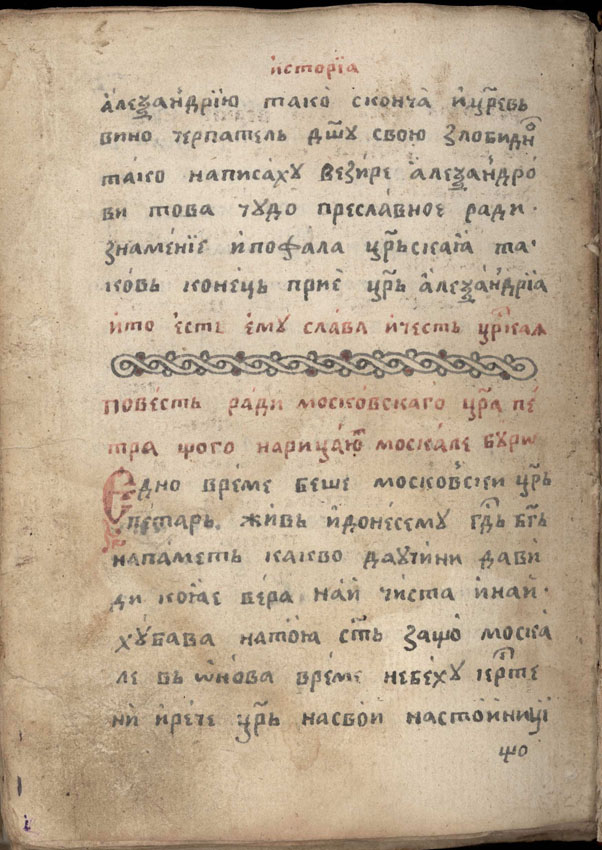 исторїа
а҆леѯа҆ндрїю тако̀ сконча̀ и҆ цр҃евь
вино черпатель дш҃у свою ѕлобиⷣн
тако написахꙋ везире а҆леѯа҆ндро
ви това чꙋдо пресла́вное ради ·
знаме́нїе и҆пофала цр҃ьскаꙗ та·
ковь коне́ць приѐ цр҃ь а҆леѯа҆ндрїа
и҆то е҆сть е҆мꙋ слава и҆честь цр҃каѧ
пове́сть ради моско́вскаго цр҃а пе́
тра щого нарица́ю москале бꙋрѡ
Едно вре́ме беше моско́вски цр҃ь
пе́тарь. живь и҆донесемꙋ гдⷭ҇ь бг҃ь
напа́меть какво даꙋчини дави
ди коꙗ̀е вѣра най чиста и҆най·
хꙋ́бава натоꙗ ст҃ь защо̀ моска́
ле вь ѡ҆нова вре́ме небе́хꙋ кр҃ще
ни и҆рече цр҃ь насвои настойницї
що